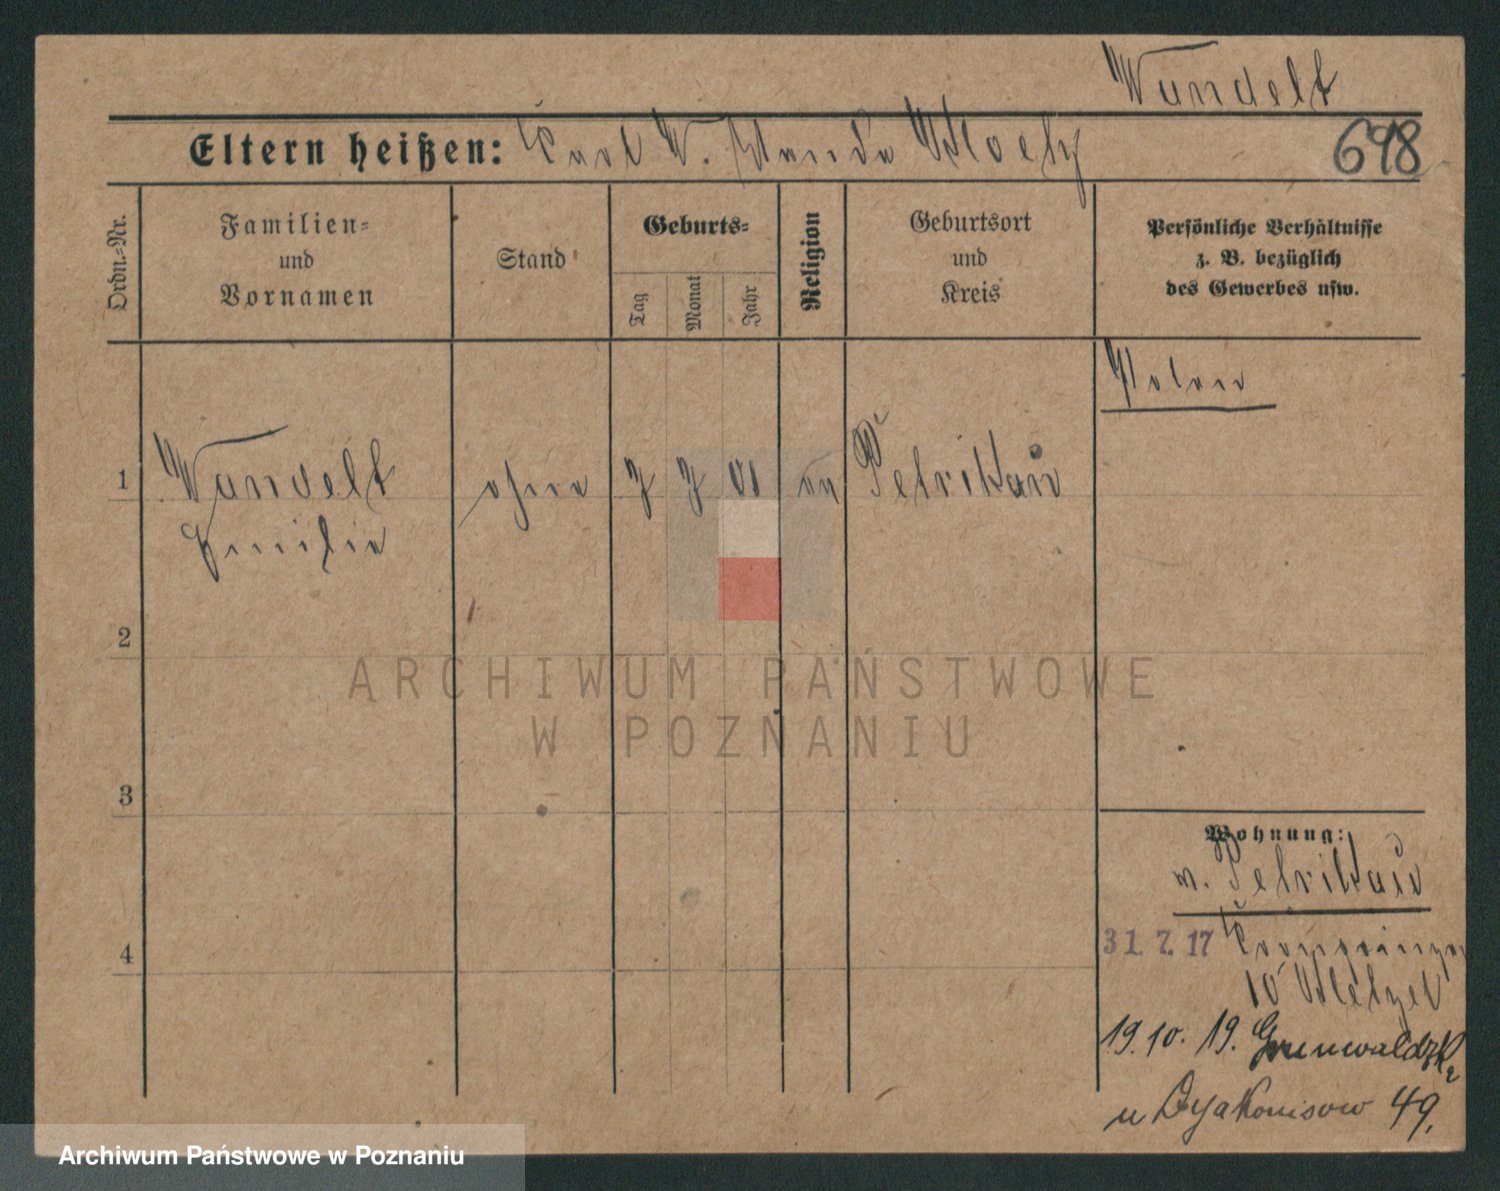 Wandelt
Eltern heißen: Karl W. Wanda
698
Ordn.-Nr.
Familien-
und
Vornamen
Stand
Geburts-
Tag
Monat
Jahr
Religion
Geburtsort
und
Kreis
Persönliche Verhältnisse
z. B. bezüglich
des Gewerbes usw.
Polen
1 Wandelt ohne 7 7 01 ev Petrikau
Emilie
2
3
4
ARCHIWUM PAŃSTWOWE
W POZNANIU
Wohnung:
v. Petrikau
31. 7. 17 Kronprinzen
10
19. 10. 19. Grunwaldzka
u Dyakonisow 49.
Archiwum Państwowe w Poznaniu